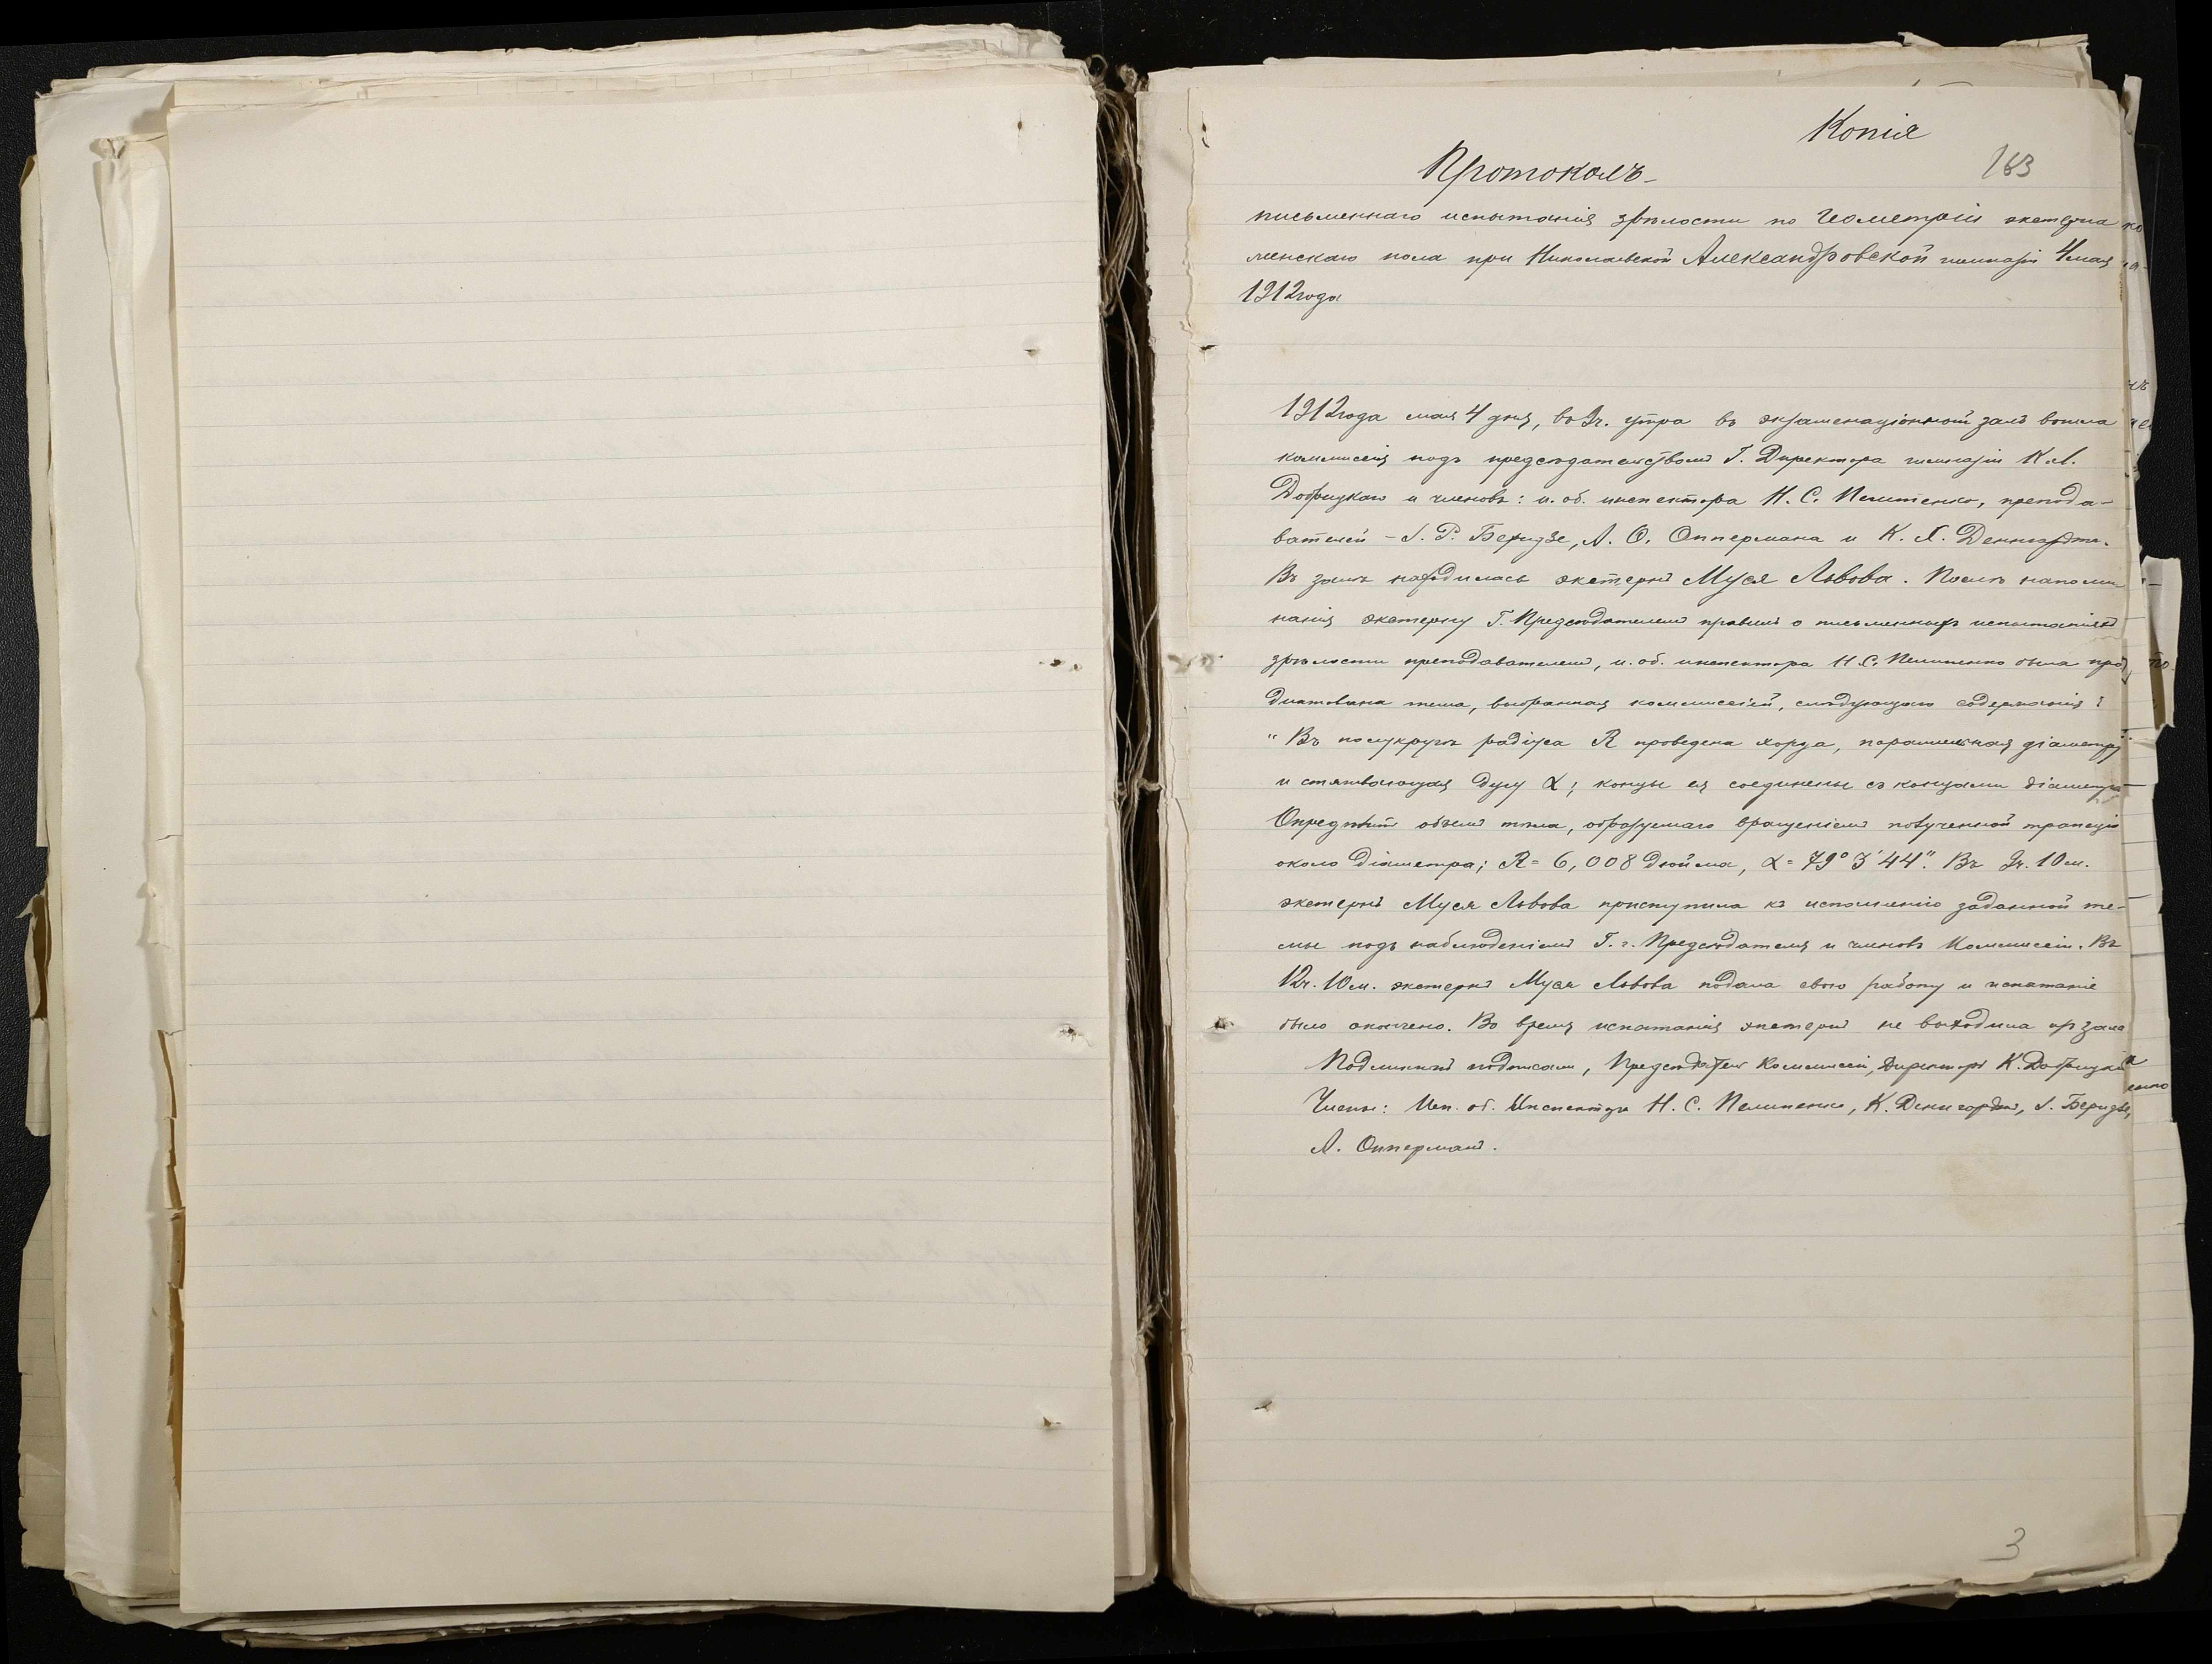 Копія
163
Протоколъ
письменнаго испытанія зрѣлости по геометріи экстерна
женскаго пола при Николаевской Александровской гимназіи 4 мая
1912 года
1912 года мая 4 дня, въ 9 ч. утра въ экзаменаціонный залъ вошла
коммиссія подъ предсѣдательствомъ Г. Директора гимназіи К. И.
Добрицкаго и членовъ: и. об. инспектора Н. С. Пелипенко, препода-
вателей – І. Р. Беридзе, А. О.Оппермана и К. Х. Деннгардта.
Въ залѣ находилась экстернъ Муся Львова. Послѣ напоми-
нанія экстерну Г. Предсѣдателемъ правилъ о письменныхъ испытаніяхъ
зрѣлости преподавателемъ, и. об. инспектора Н. С. Пелипенко была про-
диктована тема, выбранная коммиссіей, слѣдующаго содержанія:
"Въ полукругѣ радіуса R проведена хорда, параллельная діаметру
и стягивающая дугу α; концы ея соединены съ концами діаметра
Опредѣлить объемъ тѣла, образуемаго вращеніемъ полученной трапеціи
около діаметра; R = 6,008 дюйма, α = 79° 3' 44". Въ 9 ч. 10 м.
экстернъ Муся Львова приступила къ исполненію заданной те-
мы подъ наблюденіемъ Г. г. Предсѣдателя и членовъ Коммиссіи. Въ
12 ч. 10 м. экстернъ Муся Львова подала свою работу и испытаніе
было окончено. Во время испытанія экстернъ не выходила изъ зала
Подлинный подписали, Предсѣдатель Коммиссіи, Директоръ К. Добрицкій
Члены: Исп. об. Инспектора Н. С. Пелипенко, К. Деннгардтъ, І. Беридзе,
А. Опперманъ.
3